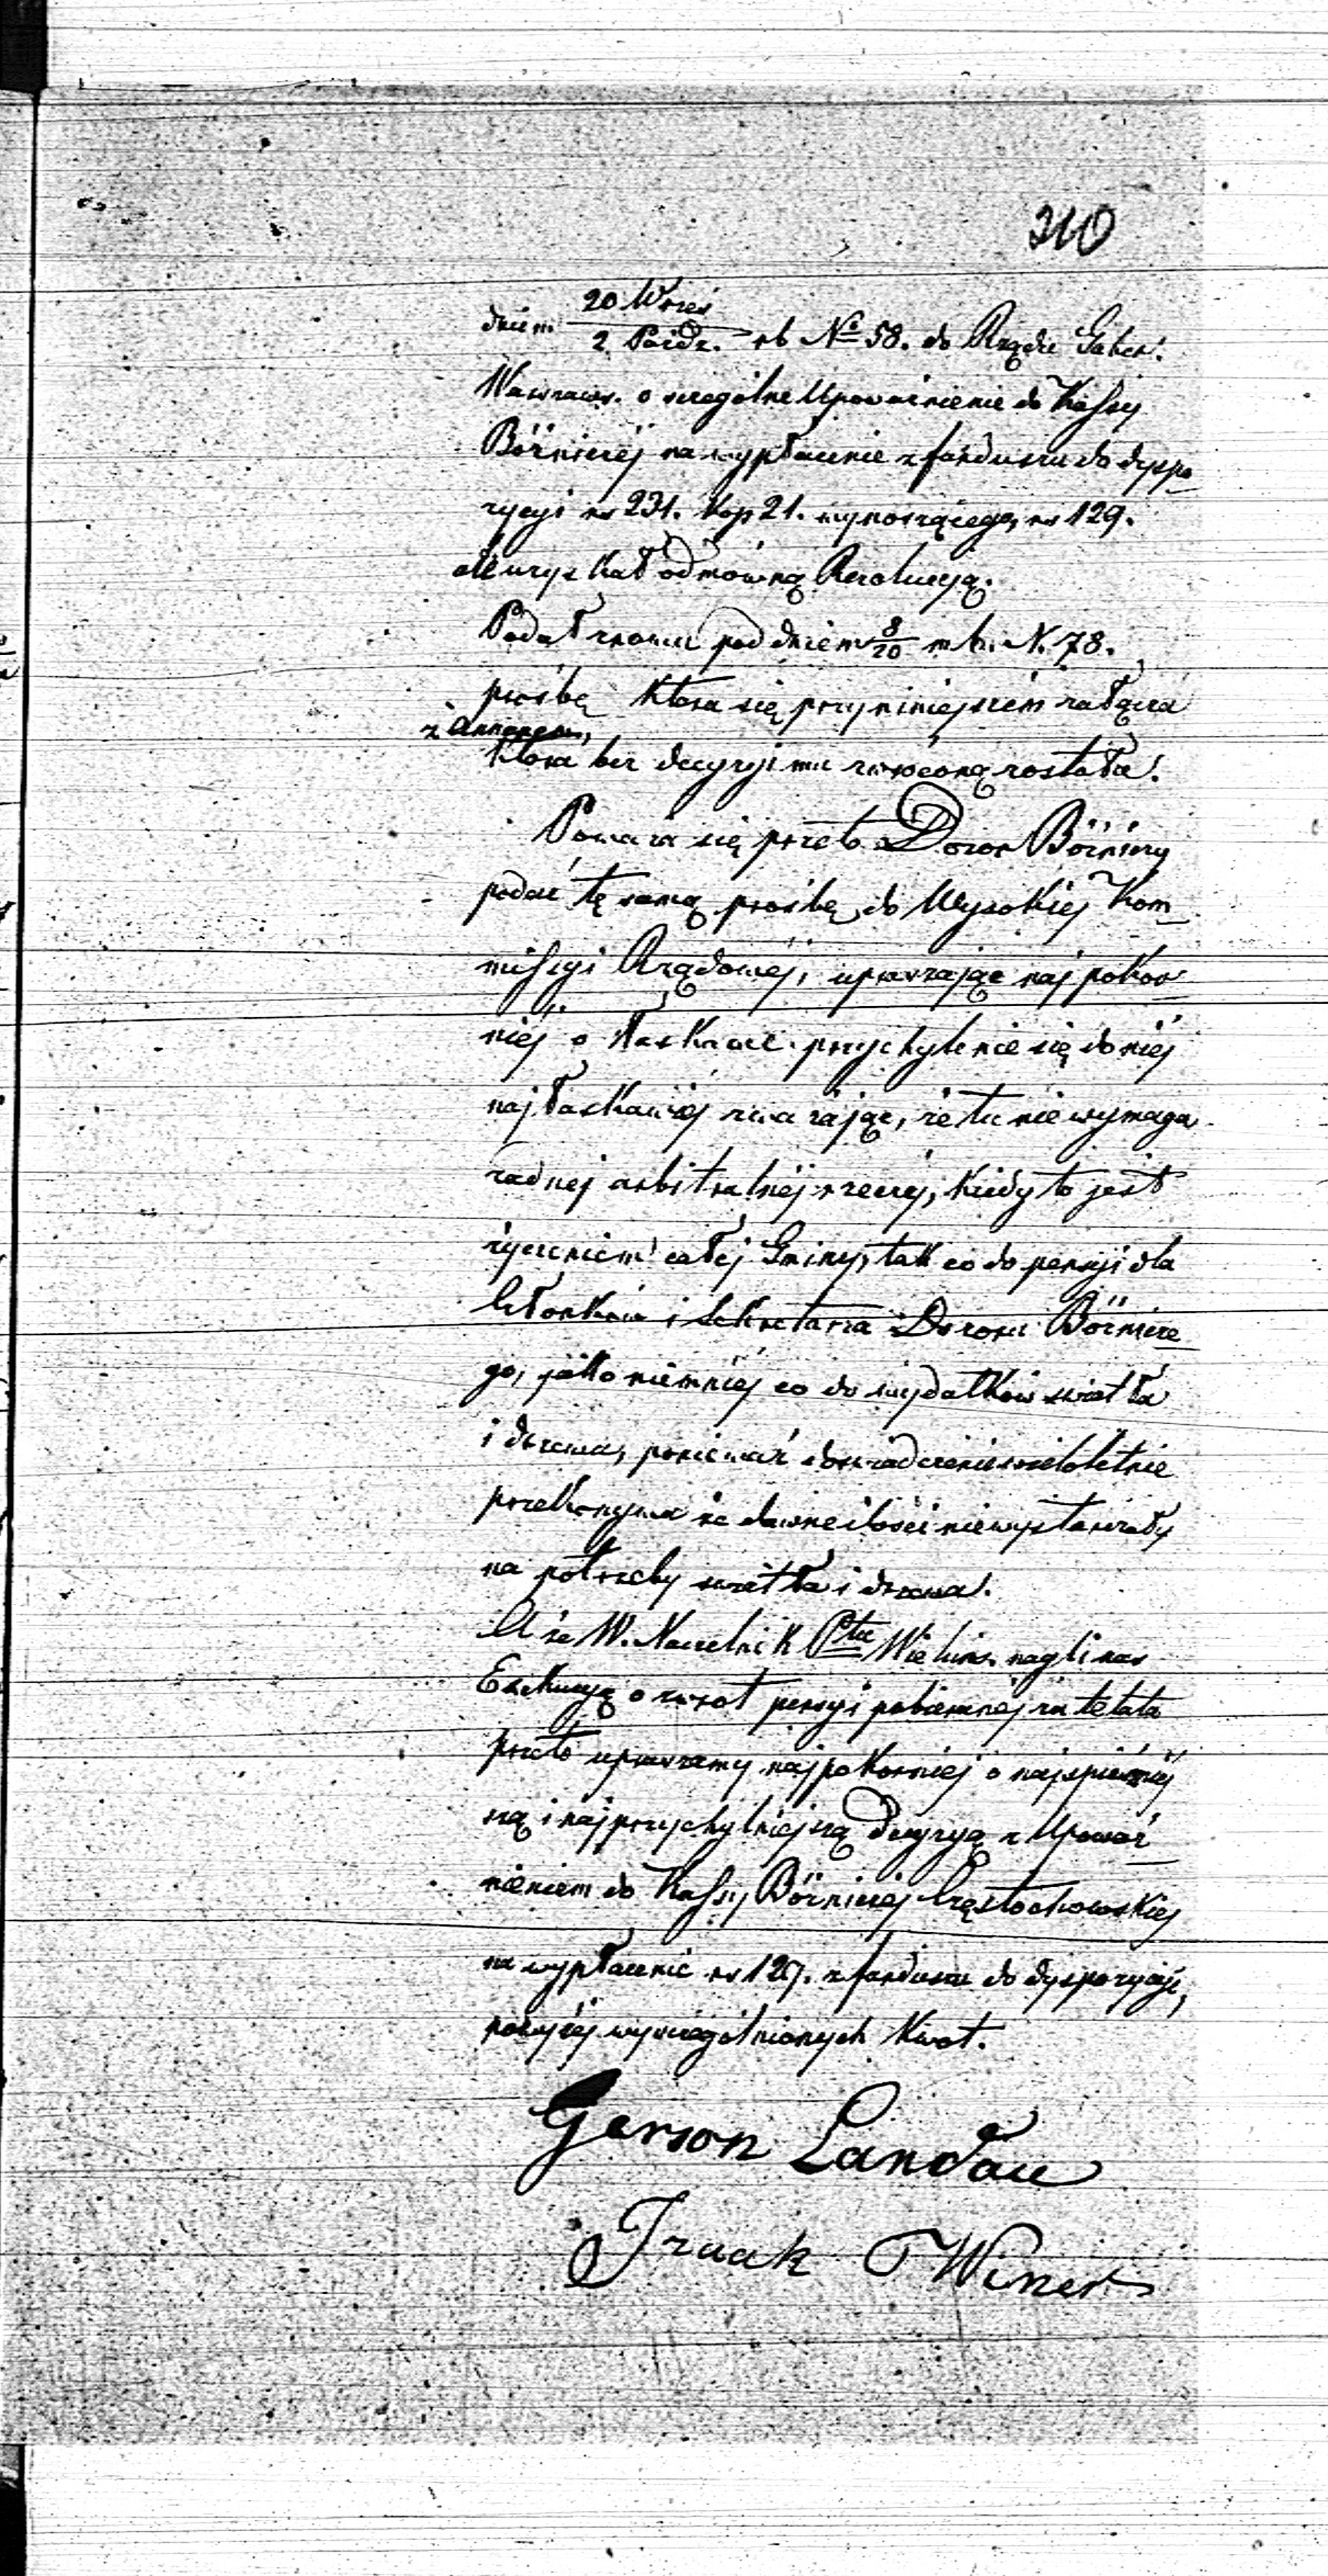 210
dniem 20 Wrześ
2 Paźdz. rb № 58. do Rządu Guber.
Warszaws. o szczególne Upoważnienie do Kassy
Bóżniczéj na wypłacenie z funduszu do dyspo
zycyi rs 231. kop 21. wynoszącego, rs 129.
ale uzyskał odmówną Rezolucyą.
Podał znowu pod dniem 8/20 m b. N. 78.
prośbę która się przy niniejszém załącza
z Annexem,
która bez decyzyi mu zwróconą została.
Poważa się przeto Dozor Bóźniczy
podać tę samą prośbę do Wysokiéj Kom
missyi Rządowéj, upraszając najpokor
niéj o łaskawe przychylenie się do niéj
najłaskawiéj zważając, że tu nie wymaga
żadnéj arbitralnéj rzeczy, kiedy to jest
życzeniem całéj Gminy, tak co do pensyi dla
Członków i Sekretarza Dozoru Bóźnicze
go, jako niemniéj co do wydatków swiatła
i drzewa, ponieważ doswiadczenie wieloletnie
przekonywa że dawne ilości niewystarczały
na potrzeby swiatła i drzewa.
A że W. Naczelnik Ptu Wieluns. nagli nas
Exekucyą o zwrot pensyi pobieranéj za te lata
przeto upraszamy najpokorniéj o najspieszniéj
szą i najprzychylniejszą decyzyą z Upoważ
nieniem do Kassy Bóżniczéj Częstochowskiéj
na wypłacenie rs 129. z funduszu do dyspozycyi,
powyżéj wyszczególnionych kwot.
Gerson Landau
Izaak Winer